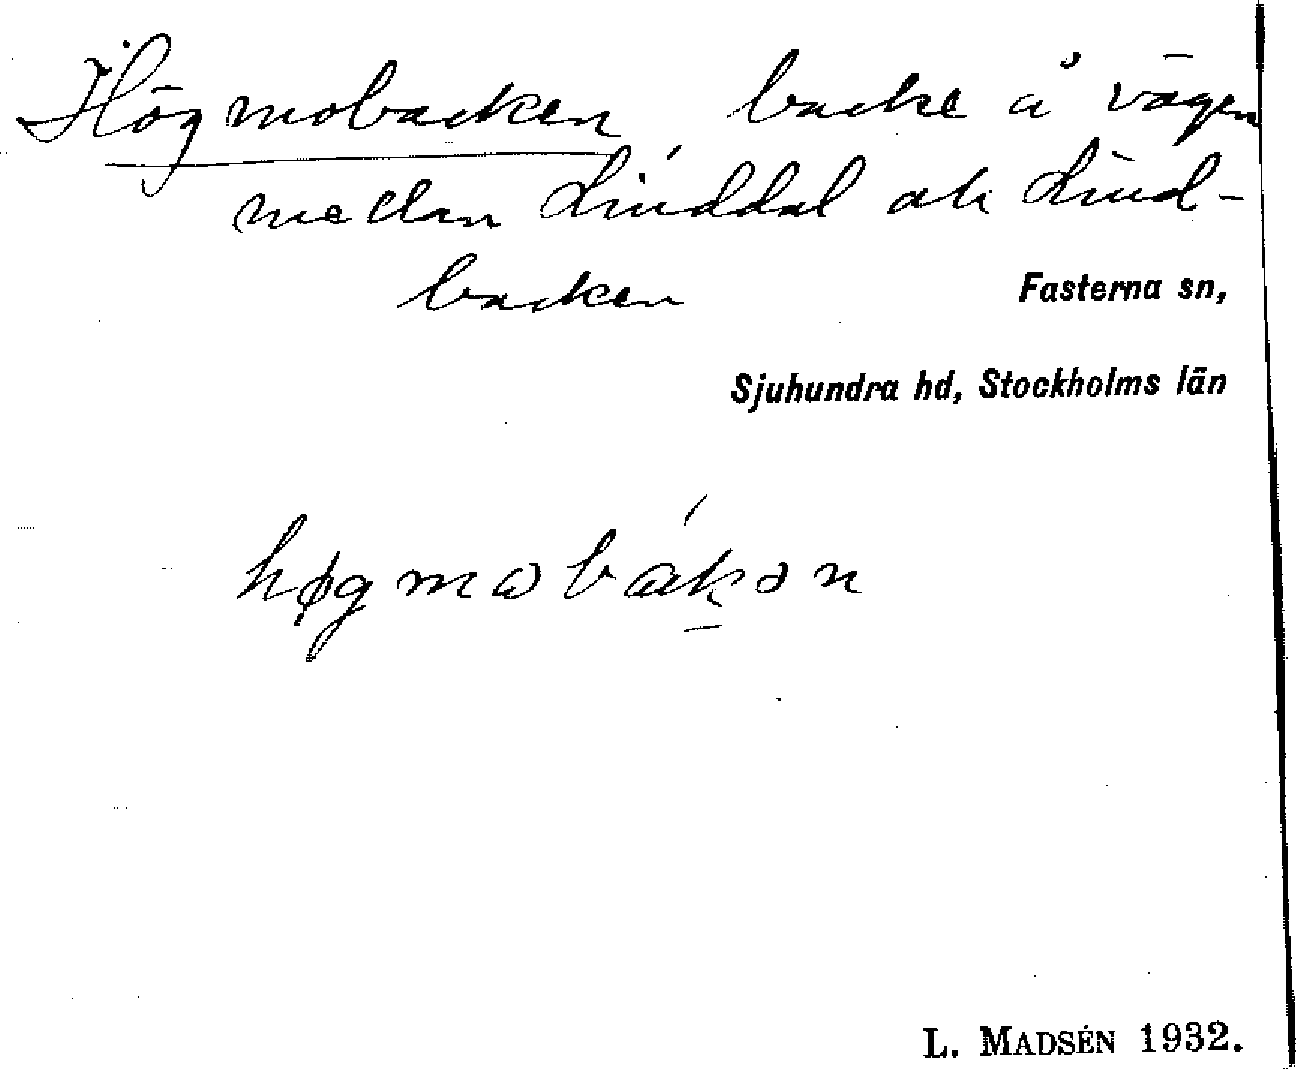 Högmobacken, backe å vägen
mellan Linddal ok Lind-
backen
Fasterna sn,
Sjuhundra hd, Stockholms län
høgmωbákən
L. MADSÉN 1932.